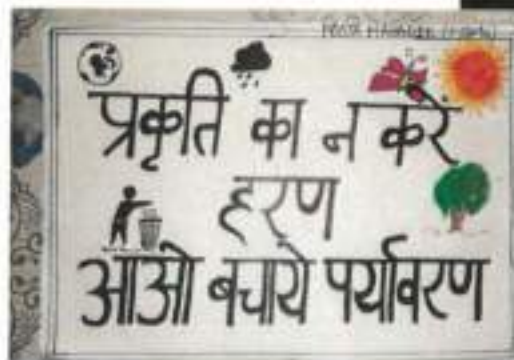 प्रकृति का न करें
हरण
आओ बचाये पर्यावरण